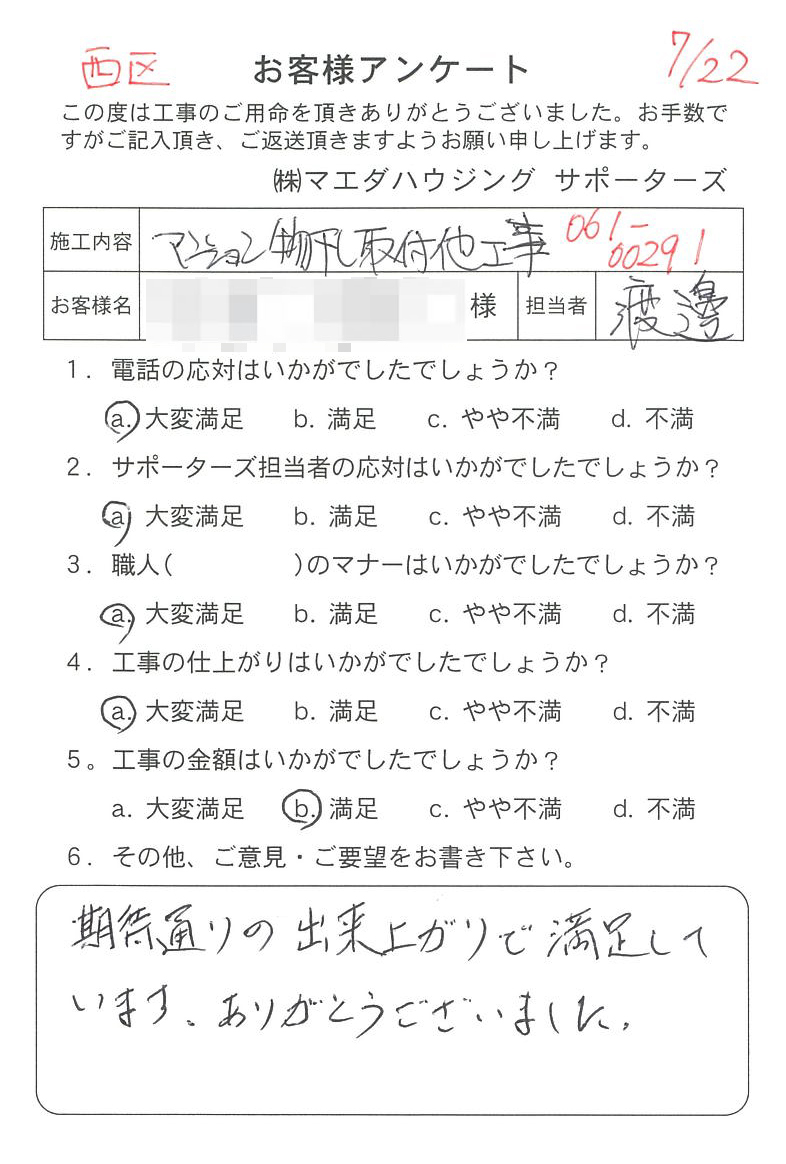 西区 お客様アンケート 7/22
この度は工事のご用命を頂きありがとうございました。お手数で
すがご記入頂き、ご返送頂きますようお願い申し上げます。
㈱マエダハウジング サポーターズ
施工内容 マンション物干し取付他工事 061-00291
お客様名 様 担当者 渡邊
1. 電話の応対はいかがでしたでしょうか?
a. 大変満足 b. 満足 c. やや不満 d. 不満
2. サポーターズ担当者の応対はいかがでしたでしょうか?
a 大変満足 b. 満足 c. やや不満 d. 不満
3. 職人( )のマナーはいかがでしたでしょうか?
a. 大変満足 b. 満足 c. やや不満 d. 不満
4. 工事の仕上がりはいかがでしたでしょうか?
a. 大変満足 b. 満足 c. やや不満 d. 不満
5。工事の金額はいかがでしたでしょうか?
a. 大変満足 b. 満足 c. やや不満 d. 不満
6. その他、ご意見・ご要望をお書き下さい。
期待通りの出来上がりで満足して
います、ありがとうございました。